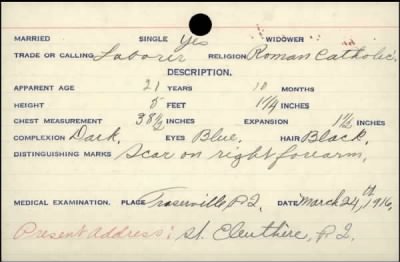 MARRIED SINGLE Yes WIDOWER
TRADE OR CALLING Laborer RELIGION Roman Catholic.
DESCRIPTION.
APPARENT AGE 21 YEARS 10 MONTHS
HEIGHT 5 FEET 1 1/4 INCHES
CHEST MEASUREMENT 38 1/2 INCHES EXPANSION 1 1/2 INCHES
COMPLEXION Dark. EYES Blue. HAIR Black.
DISTINGUISHING MARKS Scar on right forearm.
MEDICAL EXAMINATION. PLACE Fraserville, P.2. DATE March 24, th 1916,
Present Address: St. Eleuthère, P.2.